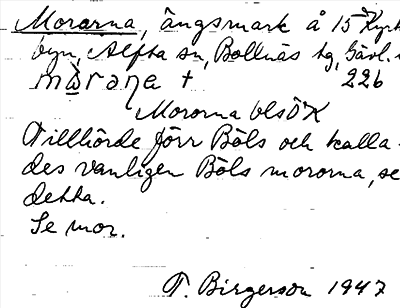 Morarna, ängsmark å 15 Kyrk
byn, Alfta sn, Bollnäs tg, Gävl.
mòrana +
22b
Mororna blsÖK
Tillhörde förr Böls och kalla-
des vanligen Böls mororna, se
detta.
Se mor.
T. Birgerson 1947